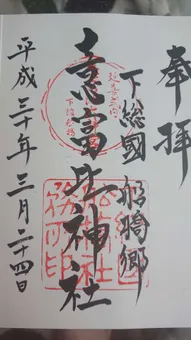 奉拝
下総國 船橋郷
意富比神社
平成三十年三月二十四日